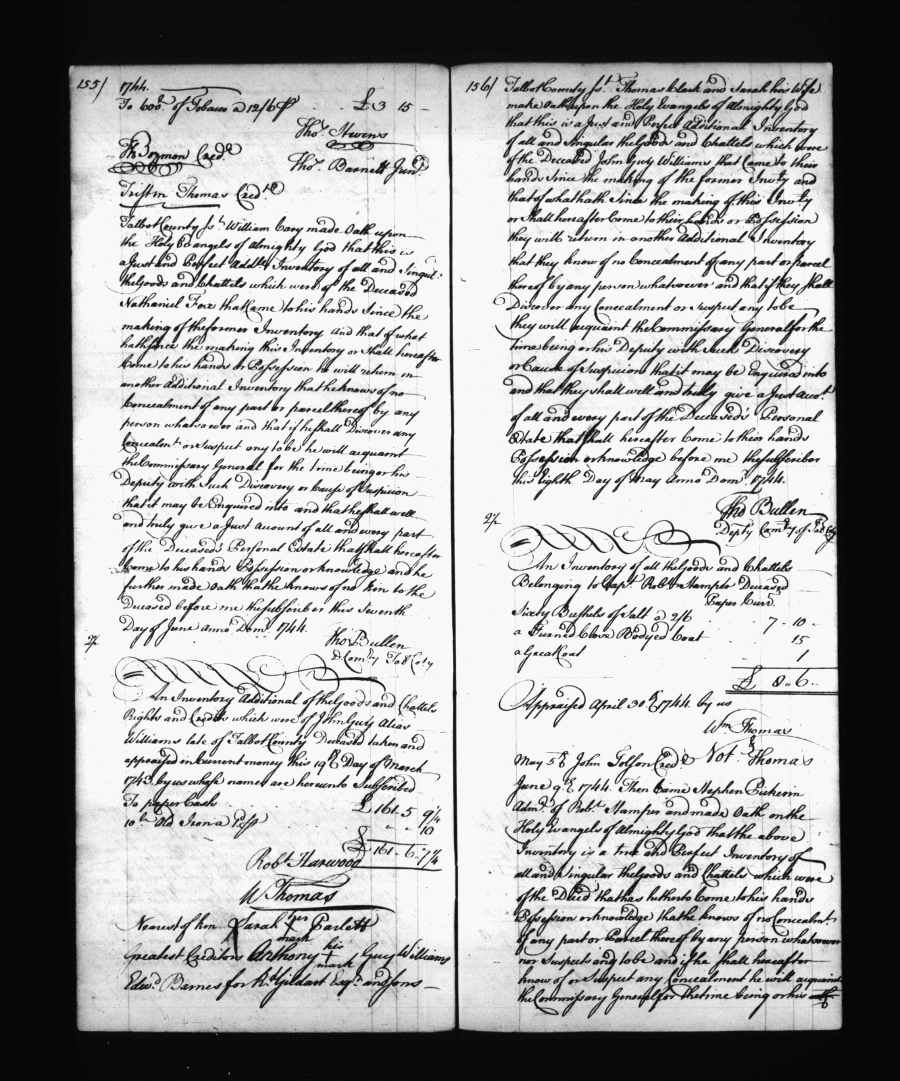 155/ 1744
To 600lb. of Tobacco a 12/6 p £3 15 -
Thos. Stevens
Th Bozman Credr.
Thos. Barnett Junr.
Tristm Thomas Credr.
Talbot County Ss. William Cary made Oath upon
the Holy Evangels of Almighty God that this is
a Just and Perfect Addll. Inventory of all and Singul.
the Goods and Chattels which were of the Deceased
Nathaniel Fox that Came to his hands Since the
making of the former Inventory and that of what
hath Since the making this Inventory or Shall hereafter
Come to his hands or Possession he will return in
another Additional Inventory that he knows of no
Concealment of any part or parcel thereof by any
person whatsoever and that if he shall Discover any
Concealmt. or Suspect any to be he will acquaint
the Commissary General for the time being or his
Deputy with Such Discovery or Cause of Suspicion
that it may be Enquired into and that he shall well
and truly give a Just Acount of all and every part
of the Deceased's Personal Estate that shall hereafter
Come to his hands Possession or knowledge and he
further made Oath that he knows of no kin to the
Deceased before me the Subscriber this Seventh
Day of June Anno Dom: 1744.
Tho Bullen
D Comry Tal Coty
An Inventory Additional of the Goods and Chattels
Rights and Credits which were of John Guy Alias
Williams late of Talbot County Deceased taken and
appraised in Current money this 19th Day of March
1743 by us whose names are hereunto Subscribed
To paper Cash £161.5 9¼
10lb Old Iron a 1d p - - 10
£161 - 6 - 7¼
Robt. Harwood
W Thomas
Nearest of kin Sarah her mark Parlett
Greatest Creditors Anthony his mark Guy Williams
Edwd. Barnes for Rd Gildart Esqr. and Sons -
156/ Talbot County Ss. Thomas Clark and Sarah his Wife
make Oath upon the Holy Evangels of Almighty God
that this is a Just and Perfect Additional Inventory
of all and Singular the Goods and Chattels which were
of the Deceased John Guy Williams that Came to their
hands Since the making of the former Invty and
that of what hath Since the making of this Invty
or Shall hereafter Come to their hands or Possession
they will return in another Additional Inventory
that they know of no Concealment of any part or parcel
thereof by any person whatsoever and that if they Shall
Discover any Concealment or Suspect any to be
they will acquaint the Commissary General for the
time being or his Deputy with Such Discovery
or Cause of Suspicion that it may be Enquired into
and that they shall well and truly give a Just Acct.
of all and every part of the Deceased's Personal
Estate that shall hereafter Come to their hands
Possession or knowledge before me the subscriber
this Eighth Day of May Anno Dom: 1744.
Tho Bullen
Depty Comry of Tal Coty
An Inventory of all the Goods and Chattels
Belonging to Capt. Robt. Hamper Deceased
Paper Curr.
Sixty Bushels of Salt a 2/6 7 - 10 -
a Turned Close Bodyed Coat 15
a Great Coat 1
£ 8 .. 6 ..
Appraised April 30th 1744 by us
Wm Thomas
May 5th John Golson Credr Not & Thomas
June 9th 1744. Then Came Stephen Pickerin
Admr. of Robt. Hamper and made Oath on the
Holy Evangels of Almighty God that the above
Inventory is a true and Perfect Inventory of
all and Singular the Goods and Chattels which were
of the Decd that has hitherto Come to his hands
Possession or knowledge that he knows of no Concealmt
of any part or Parcel thereof by any person whatsoever
nor Suspects any to be and if he Shall hereafter
know of or Suspect any Concealment he will acquaint
the Commissary General for the time being or his